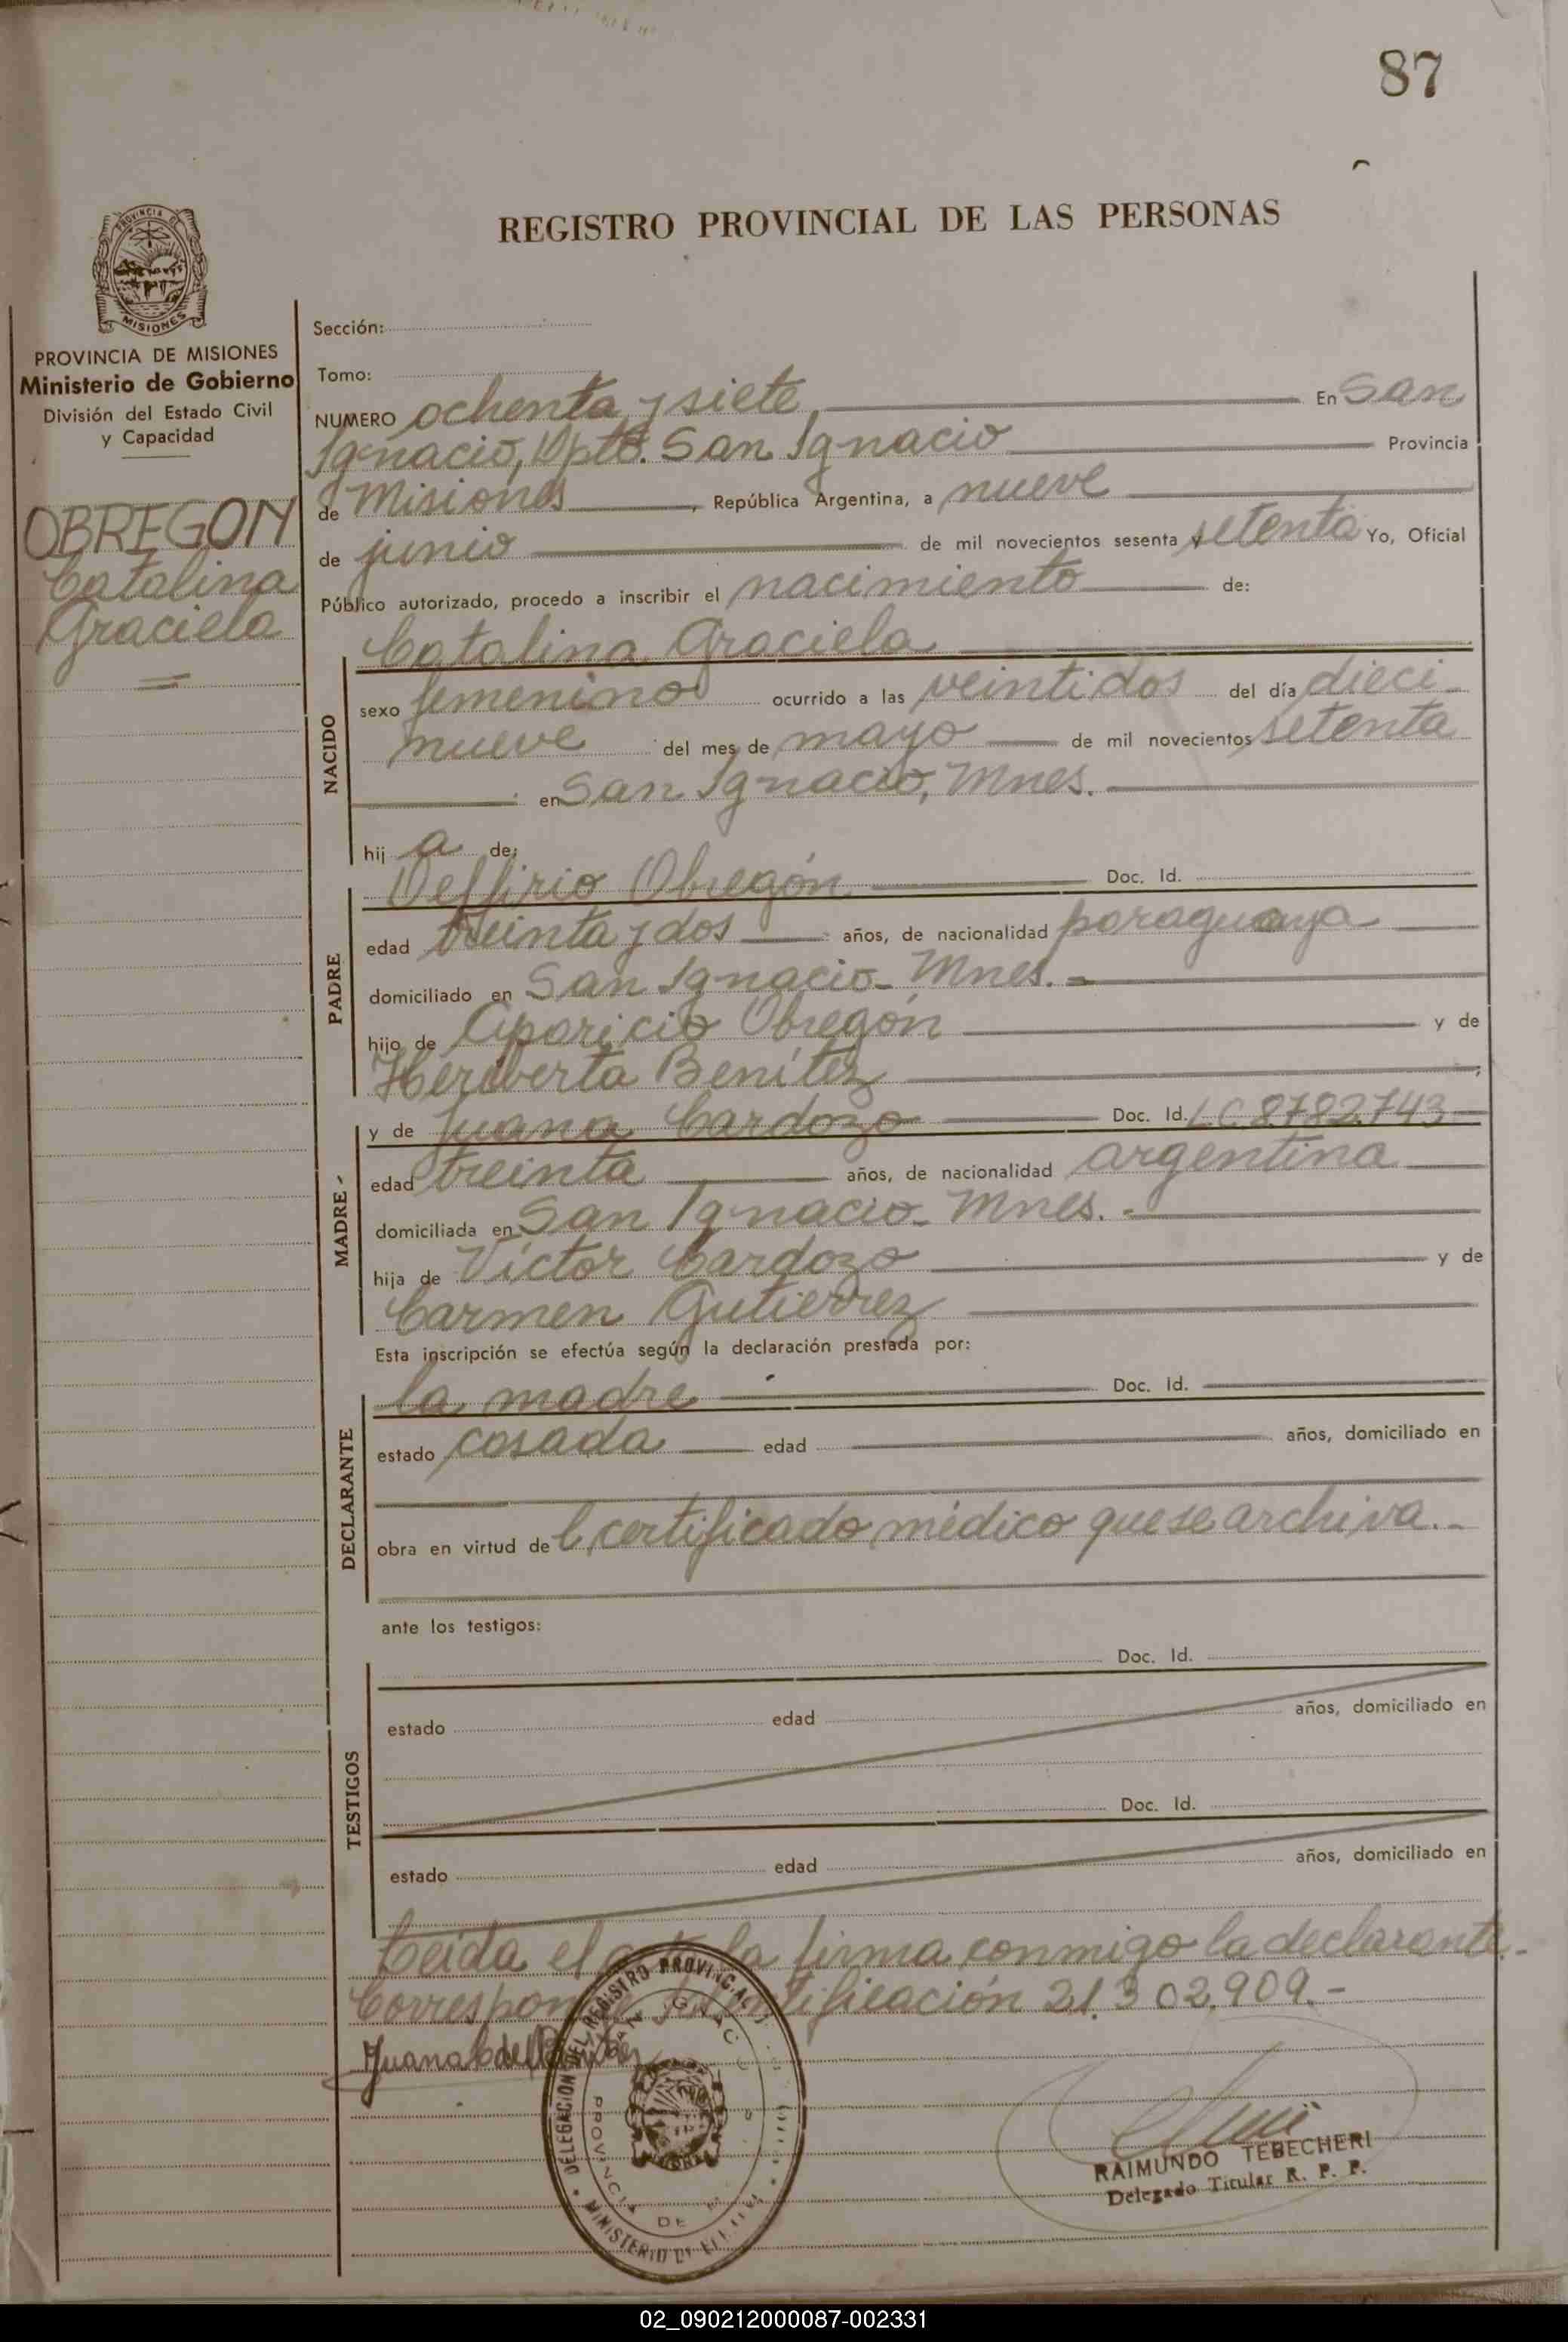 87
REGISTRO PROVINCIAL DE LAS PERSONAS
PROVINCIA DE MISIONES
PROVINCIA DE MISIONES
Ministerio de Gobierno
División del Estado Civil
y Capacidad
OBREGON
Catalina
Graciela
Sección:
Tomo:
NUMERO ochenta y siete En San
Ignacio, Dpto. San Ignacio Provincia
de Misiones, República Argentina, a nueve
de junio de mil novecientos sesenta y setenta Yo, Oficial
Público autorizado, procedo a inscribir el nacimiento de:
NACIDO
Catalina Graciela
sexo femenino ocurrido a las veintidos del día dieci
nueve del mes de mayo de mil novecientos setenta
en San Ignacio, Mnes.
hij a de:
PADRE
Obregón Doc. Id.
edad treinta y dos años, de nacionalidad paraguaya
domiciliado en San Ignacio - Mnes. =
hijo de Aparicio Obregón y de
Heriberta Benítez ;
MADRE -
y de Juana Cardozo Doc. Id. L.C 8.782.743
edad treinta años, de nacionalidad argentina
domiciliada en San Ignacio - Mnes. -
hija de Víctor Cardozo y de
Carmen Gutierrez
Esta inscripción se efectúa según la declaración prestada por:
DECLARANTE
la madre Doc. Id.
estado casada edad años, domiciliado en
obra en virtud de l certificado médico que se archiva.-
ante los testigos:
TESTIGOS
Doc. Id.
estado edad años, domiciliado en
Doc. Id.
estado edad años, domiciliado en
Leída el acta la firma conmigo la declarante.-
Corresponde 21.302.909.-
Juana
DELEGACION DEL REGISTRO PROVINCIAL
MINISTERIO DE
PROVINCIA DE
RAIMUNDO TEBECHERI
Delegado Titular R. P. P.
02_090212000087-002331